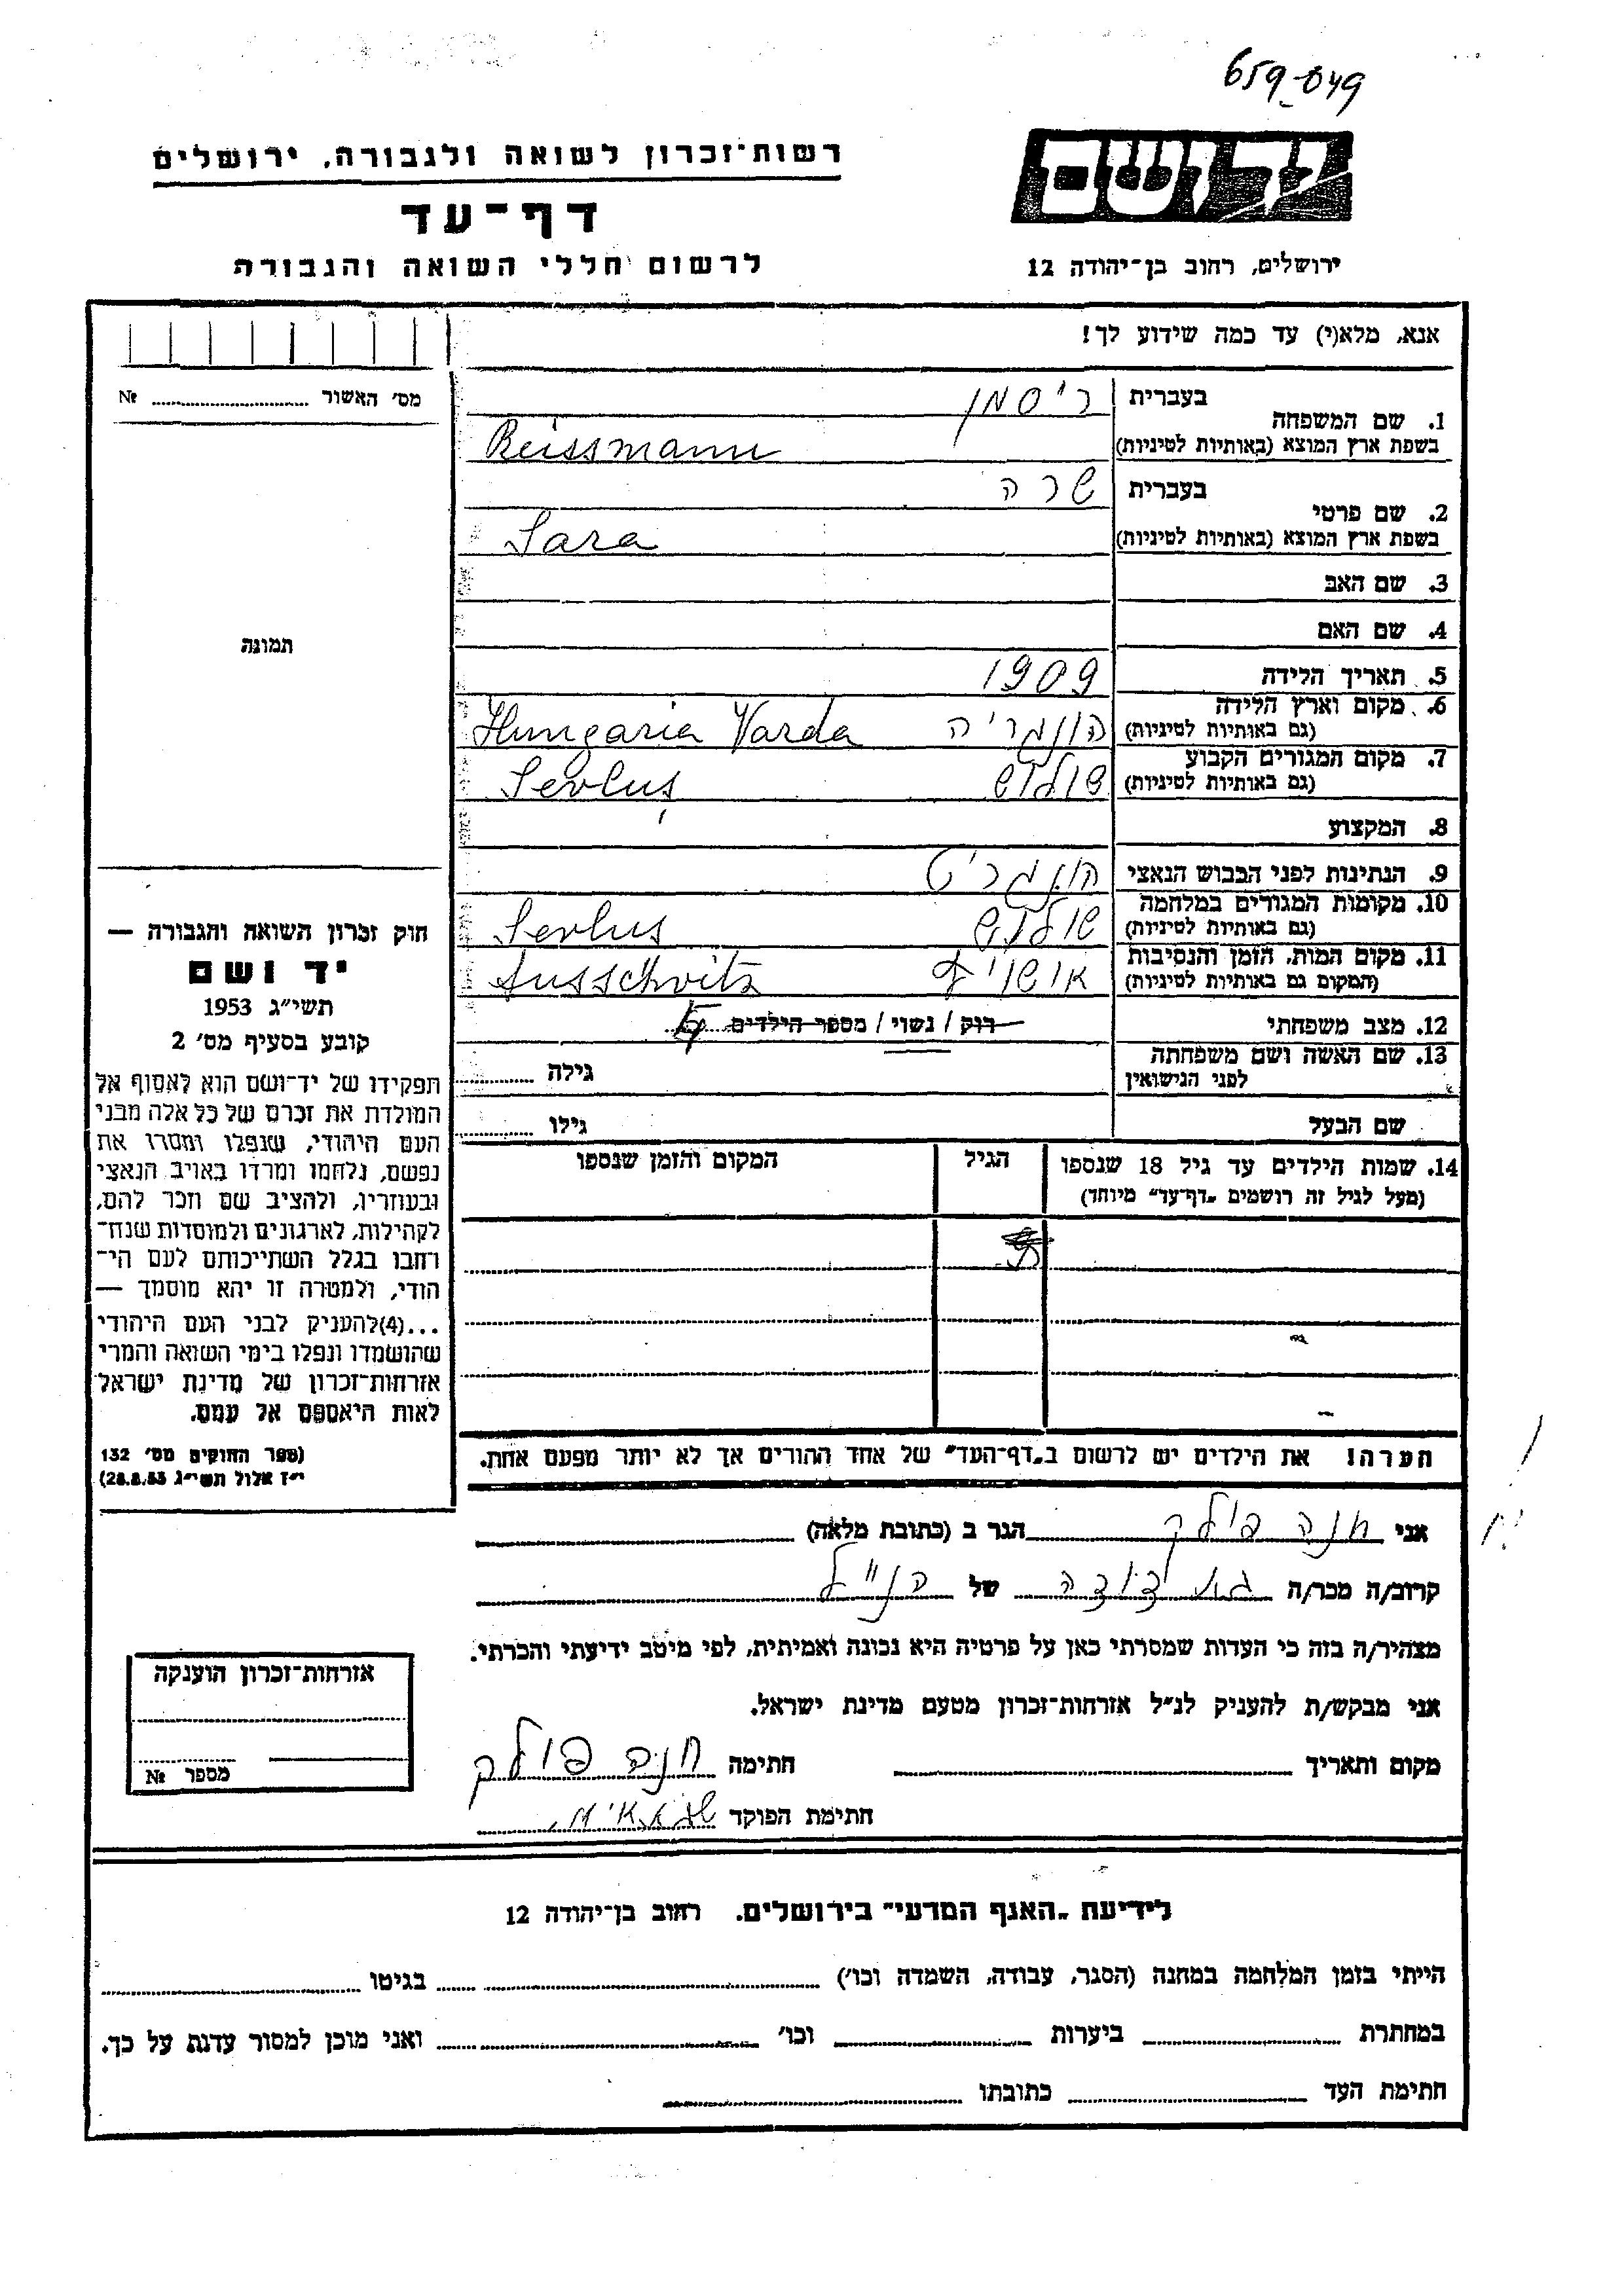 659-049
יד ושם
רשות-זכרון לשואה ולגבורה, ירושלים
דף-עד
לרשום חללי השואה והגבורה
ירושלים, רחוב בן-יהודה 12
אנא, מלא(י) עד כמה שידוע לך!
מס׳ האשור № 
1. שם המשפחה
בעברית ריסמן
בשפת ארץ המוצא (באותיות לטיניות) Reissmann
2. שם פרטי
בעברית שרה
בשפת ארץ המוצא (באותיות לטיניות) Sara
3. שם האב
4. שם האם
5. תאריך הלידה 1909
6. מקום וארץ הלידה
(גם באותיות לטיניות) הונגריה Hungaria Varda
7. מקום המגורים הקבוע
(גם באותיות לטיניות) Sevluş
8. המקצוע
9. הנתינות לפני הכבוש הנאצי
10. מקומות המגורים במלחמה
(גם באותיות לטיניות) Sevlus
11. מקום המות, הזמן והנסיבות
(המקום גם באותיות לטיניות) אושויץ Ausschvitz
12. מצב משפחתי רוק / נשוי / מספר הילדים
13. שם האשה ושם משפחתה
לפני הנישואין גילה
שם הבעל גילו
14. שמות הילדים עד גיל 18 שנספו הגיל המקום והזמן שנספו
(מעל לגיל זה רושמים „דף-עד" מיוחד)
תמונה
חוק זכרון השואה והגבורה —
יד ושם
תשי״ג 1953
קובע בסעיף מס׳ 2
תפקידו של יד-ושם הוא לאסוף אל
המולדת את זכרם של כל אלה מבני
העם היהודי, שנפלו ומסרו את
נפשם, נלחמו ומרדו באויב הנאצי
ובעוזריו, ולהציב שם וזכר להם,
לקהילות, לארגונים ולמוסדות שנח-
רבו בגלל השתייכותם לעם הי-
הודי, ולמטרה זו יהא מוסמך —
...(4)להעניק לבני העם היהודי
שהושמדו ונפלו בימי השואה והמרי
אזרחות-זכרון של מדינת ישראל
לאות היאספם אל עמם.
(ספר החוקים מס׳ 132
י״ז אלול תשי״ג 28.8.53)
הערה! את הילדים יש לרשום ב„דף-העד" של אחד ההורים אך לא יותר מפעם אחת.
אני חנה פולק הגר ב (כתובת מלאה)
קרוב/ה מכר/ה בת דודה של הנ״ל
מצהיר/ה בזה כי העדות שמסרתי כאן על פרטיה היא נכונה ואמיתית, לפי מיטב ידיעתי והכרתי.
אני מבקש/ת להעניק לנ״ל אזרחות-זכרון מטעם מדינת ישראל.
מקום ותאריך חתימה חנה פולק
חתימת הפוקד
אזרחות-זכרון הוענקה
מספר №
לידיעת „האגף המדעי" בירושלים. רחוב בן-יהודה 12
הייתי בזמן המלחמה במחנה (הסגר, עבודה, השמדה וכו׳) בגיטו
במחתרת ביערות וכו׳ ואני מוכן למסור עדות על כך.
חתימת העד כתובתו